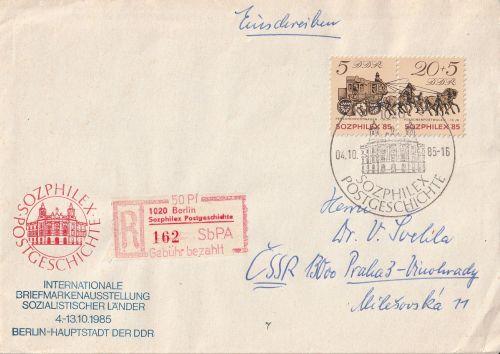 Einschreiben
5 DDR
20+5 DDR
SOZPHILEX 85
SOZPHILEX 85
04.10. 85-16
SOZPHILEX
POSTGESCHICHTE
SOZPHILEX·
POSTGESCHICHTE·
50 Pf
R
1020 Berlin
Sozphilex Postgeschichte
162 SbPA
Gebühr bezahlt
Herrn
Dr. V. Svetila
ČSSR 13000 Praha 3-Vinohrady
Milešovská 11
INTERNATIONALE
BRIEFMARKENAUSSTELLUNG
SOZIALISTISCHER LÄNDER
4.-13.10.1985
BERLIN-HAUPTSTADT DER DDR